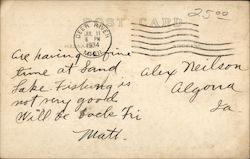 POST CARD
25.00
DEER RIVER
JUL 11
6 PM
1934
MINN.
Are having a fine
time at Sand
Lake. Fishing is
not very good
Will be back Fri
Matt.
Alex Neilson
Algona
Ia